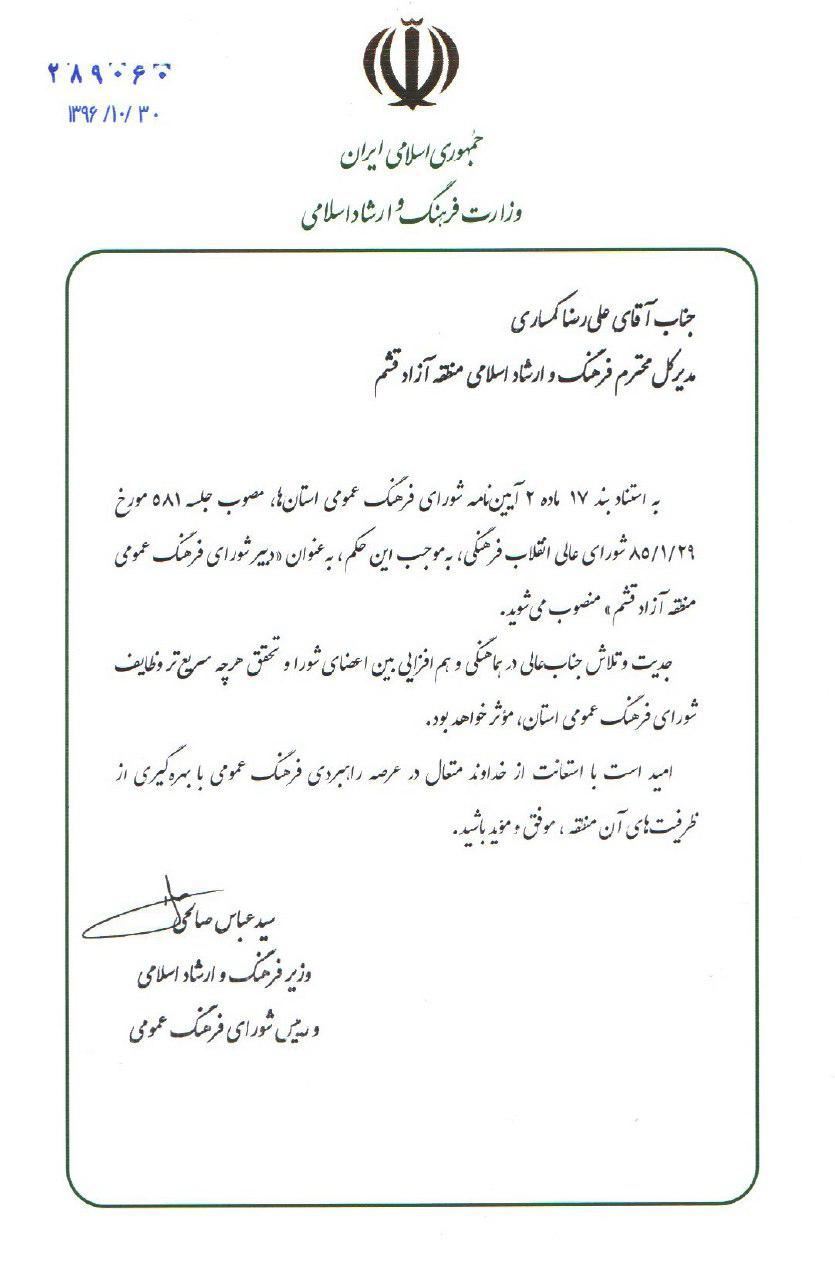 ۲۸۹۰۶۰
۱۳۹۶/۱۰/۳۰
جمهوری اسلامی ایران
وزارت فرهنگ و ارشاد اسلامی
جناب آقای علی‌رضا کمساری
مدیرکل محترم فرهنگ و ارشاد اسلامی منطقه آزاد قشم
به استناد بند ۱۷ ماده ۲ آیین‌نامه شورای فرهنگ عمومی استان‌ها، مصوب جلسه ۵۸۱ مورخ
۸۵/۱/۲۹ شورای عالی انقلاب فرهنگی، به‌موجب این حکم، به‌عنوان «دبیر شورای فرهنگ عمومی
منطقه آزاد قشم» منصوب می‌شوید.
جدیت و تلاش جناب‌عالی در هماهنگی و هم‌افزایی بین اعضای شورا و تحقق هرچه سریع‌تر وظایف
شورای فرهنگ عمومی استان، مؤثر خواهد بود.
امید است با استعانت از خداوند متعال در عرصه راهبردی فرهنگ عمومی با بهره‌گیری از
ظرفیت‌های آن منطقه، موفق و مؤید باشید.
سید عباس صالحی
وزیر فرهنگ و ارشاد اسلامی
و رییس شورای فرهنگ عمومی